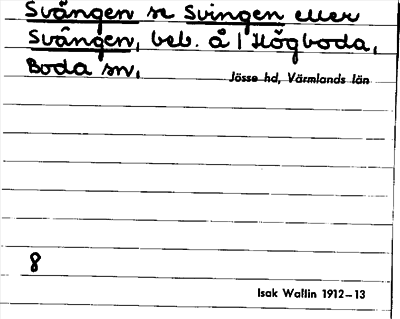 Svången se Svingen eller
Svången, beb. å 1 Högboda,
Boda sn.
Jösse hd, Värmlands län
8
Isak Wallin 1912–13